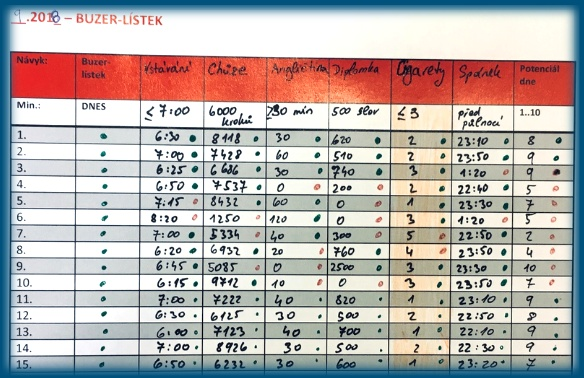 9.2018 – BUZER-LÍSTEK
Návyk: Buzer-lístek Vstávání Chůze Angličtina Diplomka Cigarety Spánek Potenciál dne
Min.: DNES ≤ 7:00 6000 kroků ≥30 min 500 slov ≤ 3 před půlnocí 1..10
1. 6:30 8118 30 620 2 23:10 8
2. 7:00 7428 60 510 2 23:50 9
3. 6:25 6606 30 740 3 1:20 9
4. 6:50 7537 0 200 2 22:40 5
5. 7:15 8432 60 0 1 23:30 7
6. 8:20 1250 120 0 3 1:20 5
7. 7:00 5334 40 300 5 22:50 2
8. 6:20 6932 20 760 4 23:50 4
9. 6:45 5085 0 2500 3 23:30 10
10. 6:15 9712 10 0 3 23:50 7
11. 7:00 7222 40 820 1 23:10 9
12. 6:30 6125 30 500 2 22:50 8
13. 6:00 7123 40 700 1 22:10 9
14. 7:00 8926 30 500 2 22:30 9
15. 6:50 6232 30 600 1 23:20 7